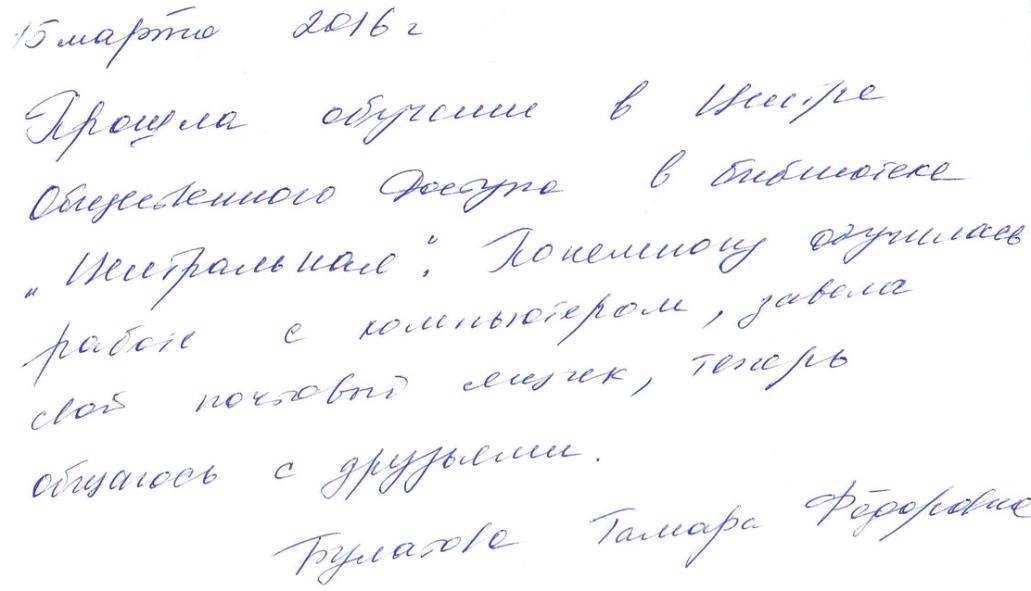 15 марта 2016 г
Прошла обучение в Центре
Общественного Доступа в библиотеке
„Центральная“. Понемногу обучилась
работе с компьютером, завела
свой почтовый ящик, теперь
общаюсь с друзьями.
Булатова Тамара Фёдоровна